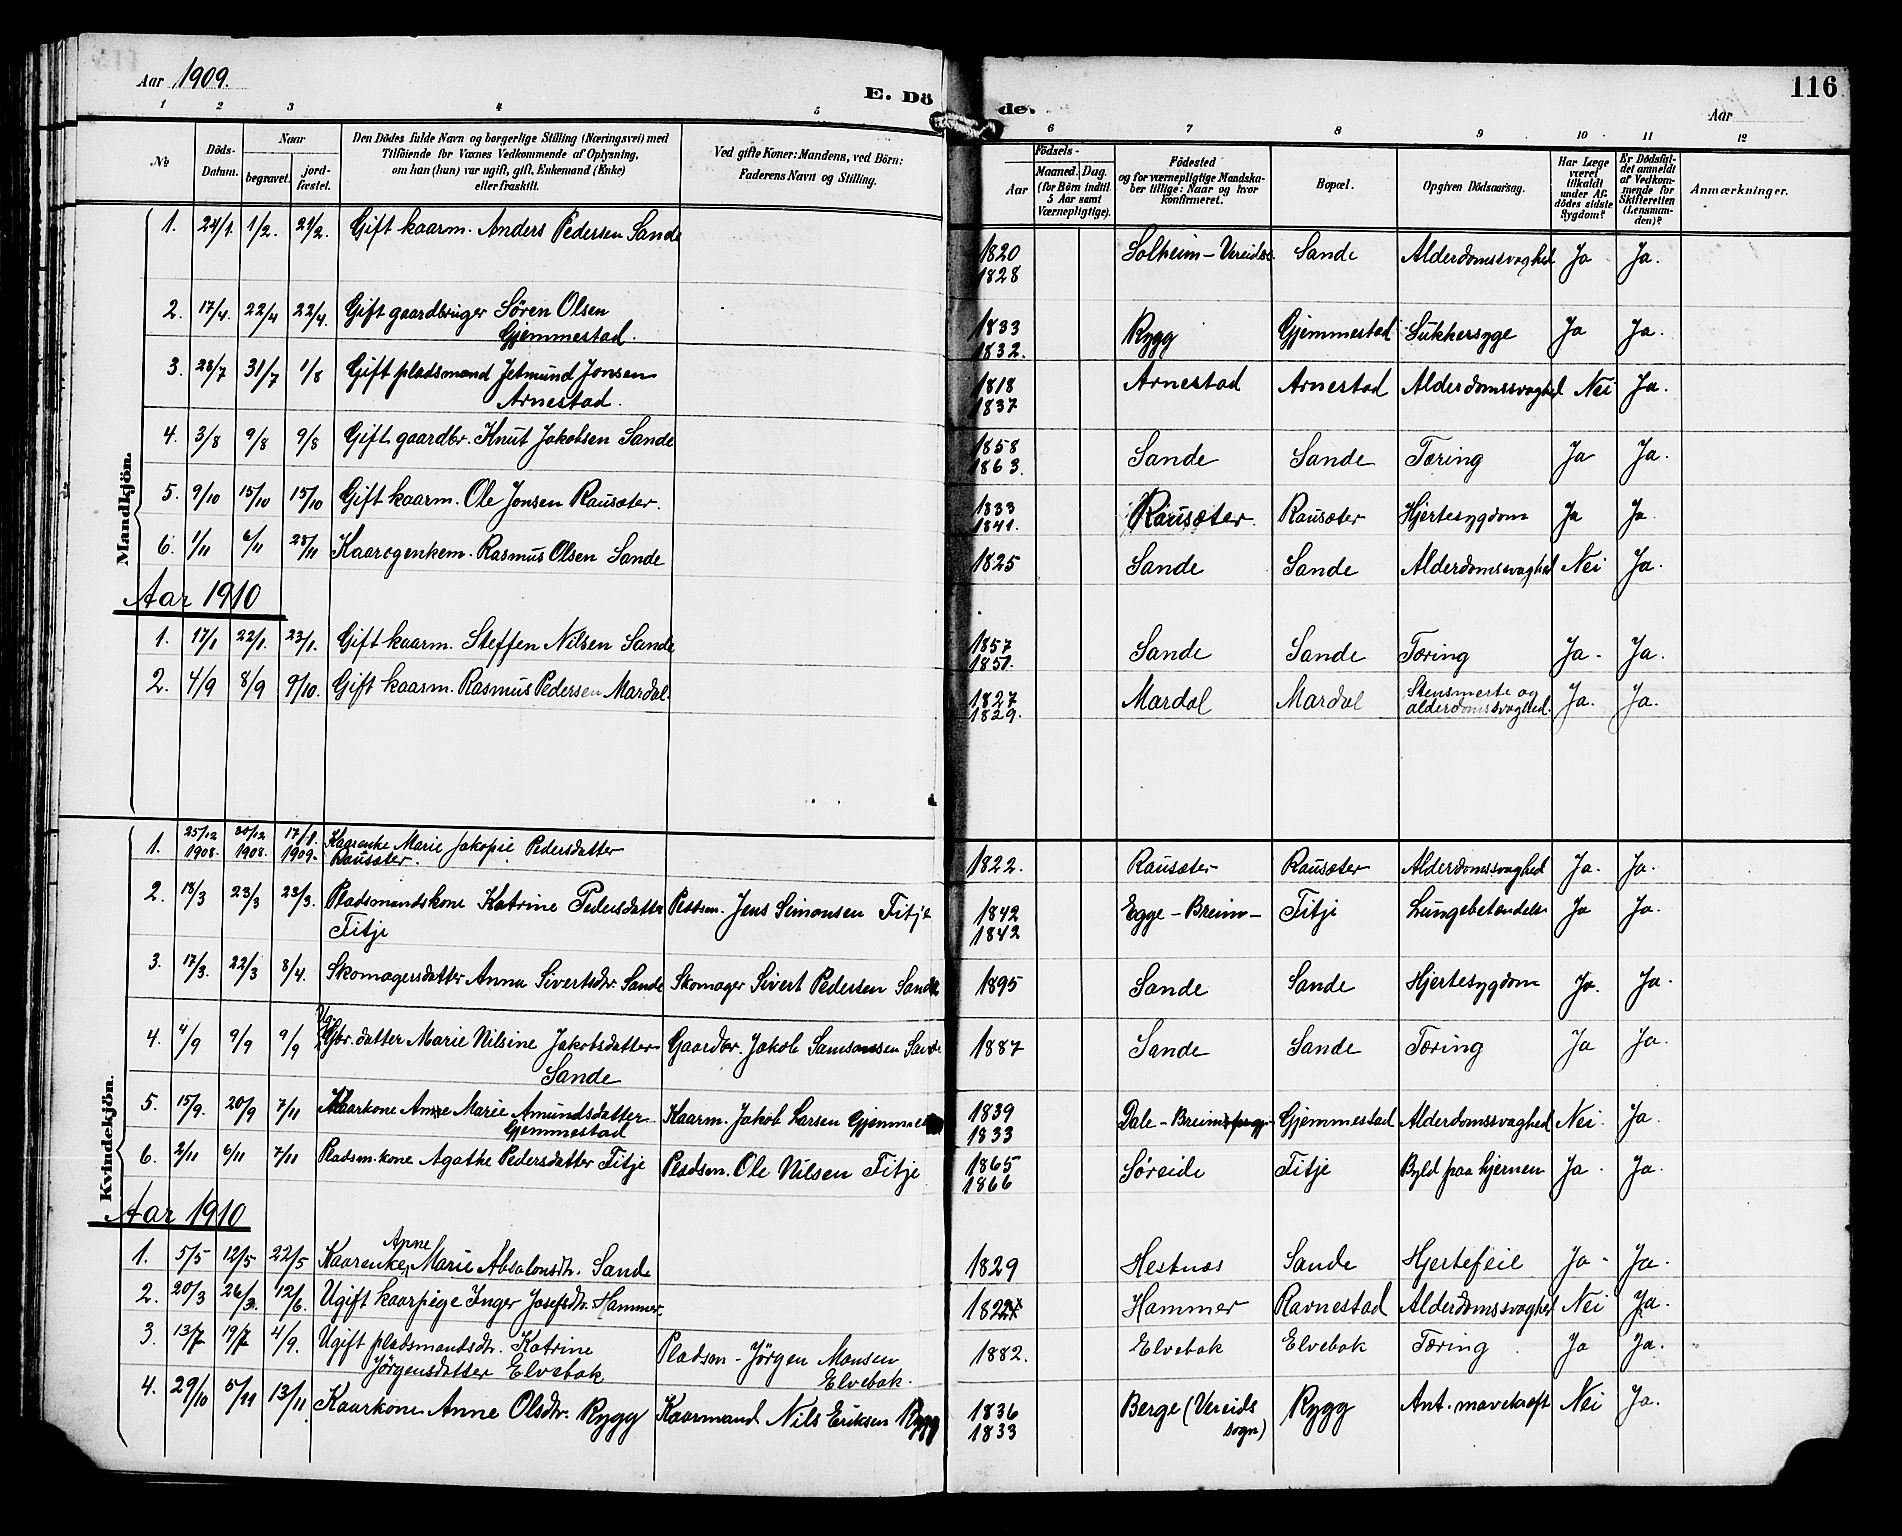 Aar 1909.
E. Döde.
116
Aar
1 2 3 4 5 6 7 8 9 10 11 12
No
Döds-Datum.
Naar
begravet.
jord-fæstet.
Den Dödes fulde Navn og borgerlige Stilling (Næringsvei) med
Tilföiende for Voxnes Vedkommende af Oplysning,
om han (hun) var ugift, gift, Enkemand (Enke)
eller fraskilt.
Ved gifte Koner: Mandens, ved Börn:
Faderens Navn og Stilling.
Födsels-
Aar
Maaned. Dag.
(for Börn indtil
5 Aar samt
Værnepligtige).
Födested
og for værnepligtige Mandska-
ber tillige: Naar og hvor
konfirmeret.
Bopæl.
Opgiven Dödsaarsag.
Har Læge
været
tilkaldt
under Af-
dödes sidste
Sygdom?
Er Dödsfal-
det anmeldt
af Vedkom-
mende for
Skifteretten
(Lensman-
den)?
Anmærkninger.
Mandkjön.
1. 24/1. 1/2. 21/2. Gift kaarm. Anders Pedersen Sande 1820 1828 Solheim - Vereidse Sande Alderdomssvaghed Ja Ja.
2. 17/4. 22/4 22/4. Gift gaardbruger Sören Olsen
Gjemmestad. 1833 1832. Rygg Gjemmestad Sukkersyge Ja Ja.
3. 28/7 31/7 1/8 Gift pladsmand Jetmund Jonsen
Arnestad. 1818 1837 Arnestad Arnestad Alderdomssvaghed Nei Ja.
4. 3/8 9/8 9/8 Gift gaardbr. Knut Jakobsen Sande 1858 1863. Sande Sande Tæring Ja Ja.
5. 9/10 15/10 15/10 Gift kaarm. Ole Jonsen Rausæter. 1833 1841. Rausæter. Rausæter Hjertesygdom Ja Ja
6. 1/11 6/11 28/11 Kaarogenkem. Rasmus Olsen Sande 1825 Sande Sande Alderdomssvaghed Nei Ja.
Aar 1910
1. 17/1 22/1. 23/1. Gift kaarm. Steffen Nilsen Sande 1857 1851. Sande Sande Tæring Ja - Ja.
2. 4/9 8/9 9/10. Gift kaarm. Rasmus Pedersen Mardal 1827 1829. Mardal Mardal Stensmerte og
alderdomssvaghed. Ja. Ja.
Kvindekjön.
1. 25/12 1908. 30/12 1908. 17/1. 1909. Kaarenke Marie Jakopie Pedersdatter
Rausæter. 1822. Rausæter Rausæter Alderdomssvaghed Ja. Ja.
2. 18/3 23/3 23/3. Pladsmandskone Katrine Pedersdatter Pladsm. Jens Simonsen Fitje
Fitje 1842 1842 Egge - Breim - Fitje Lungebetændelse Ja Ja.
3. 17/3. 22/3 8/4. Skomagersdatter Anna Sivertsdtr. Sande Skomager Sivert Pedersen Sande 1895 Sande Sande Hjertesygdom Ja. Ja.
4. 4/9 9/9 9/9 Ug. Gbr. datter Marie Nilsine Jakobsdatter Gaardbr. Jakob Samsonsen Sande
Sande 1887 Sande Sande Tæring Ja Ja.
5. 15/9. 20/9 7/11 Kaarkone Anne Marie Amundsdatter
Gjemmestad Kaarm. Jakob Larsen Gjemme 1839 1833 Dale - Breim Gjemmestad Alderdomssvaghed Nei. Ja.
6. 2/11 6/11 7/11 Pladsm. kone Agathe Pedersdatter Fitje Pladsm. Ole Nilsen Fitje 1865 1866 Söreide Fitje Byld paa hjernen Ja - Ja.
Aar 1910
1. 5/5 12/5 22/5 Kaarenke Anne Marie Absalonsdtr. Sande 1829 Hestnæs Sande Hjertefeil Ja - Ja.
2. 20/3 26/3. 12/6. Ugift kaarpige Inger Josefsdtr. Hammer. Hammer Ravnestad Alderdomssvaghed Nei Ja.
3. 13/7 19/7 4/9. Ugift pladsmandsdtr. Katrine
Jörgensdatter Elvebak Pladsm - Jörgen Monsen
Elvebak. 1882. Elvebak Elvebak Tæring Ja Ja.
4. 29/10 5/11 13/11. Kaarkone Anne Olsdtr. Rygg Kaarmand Nils Eriksen Rygg 1836 1833 Berge (Vereids
sogn) Rygg Ant. mavekræft Nei Ja.